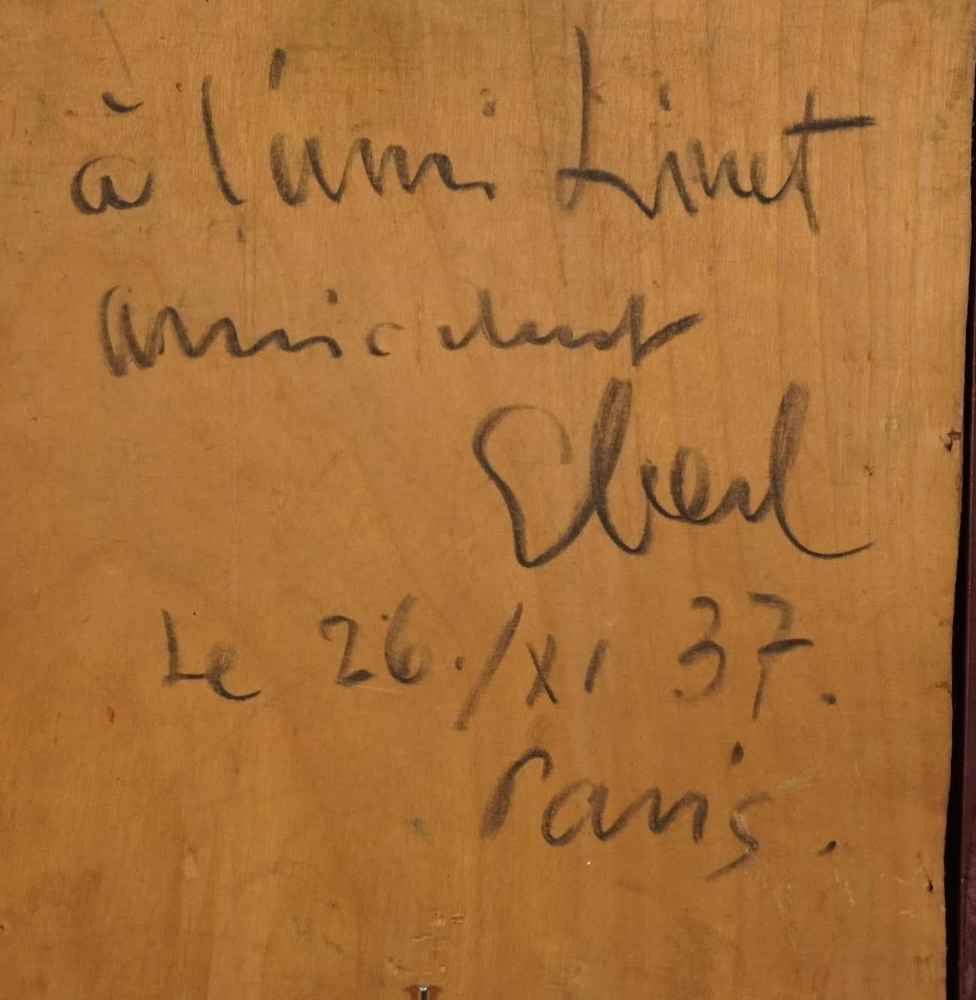 à l'ami Linet
amicalement
Eberl
Le 26./XI 37.
Paris.